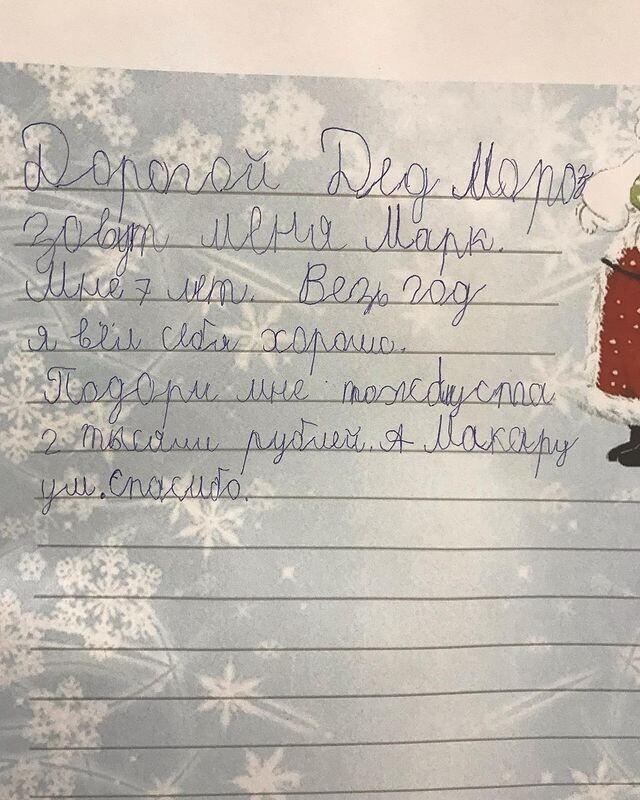 Дорогой Дед Мороз
зовут меня Марк.
Мне 7 лет. Везь год
я вёл себя хорошо.
Подари мне пожалуста
2 тысячи рублей. А Макару
ум. Спасибо.